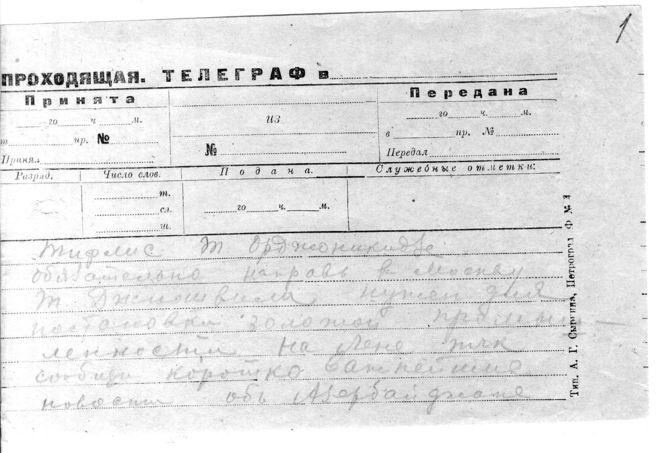 1
ПРОХОДЯЩАЯ. ТЕЛЕГРАФ в
Принята
го ч. м.
т пр. №
Принял
из
№
Передана
го ч. м.
в пр. №
Передал
Разряд.
Число слов.
т.
сл.
ш.
Подана.
го ч. м.
Служебные отметки:
Тифлис Т Орджоникидзе
обязательно направь в Москву
Т нужен для
постановки золотой промыш
ленности на Лене тчк
сообщи коротко важнейшие
новости объ Азербайджане
Тип. А. Г. Сыркина, Петроград Ф №